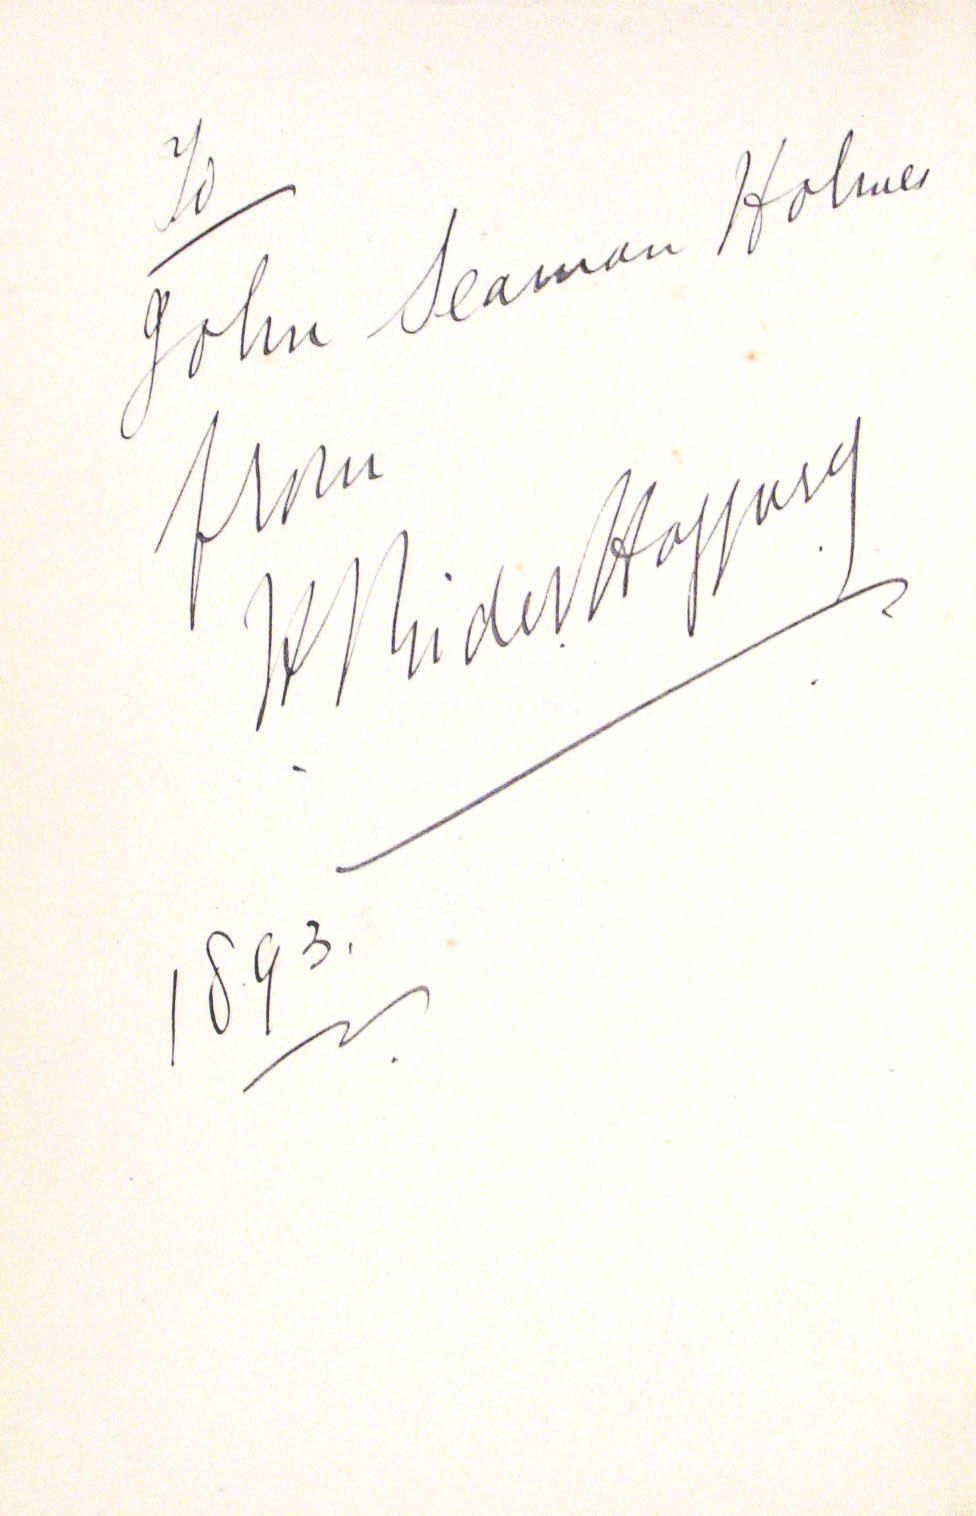 To
John Seaman Holmes
from
H Rider Haggard
1893.